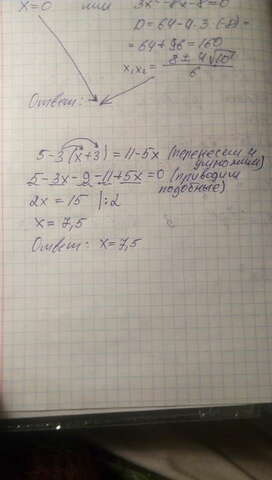 x=0 или 3x²-8x-8=0
D=64-4·3·(-8)=
=64+96=160
x₁x₂= 8±4√10 / 6
Ответ:
5-3(x+3)=11-5x (перенесем и умножим)
5-3x-9-11+5x=0 (приводим подобные)
2x=15 |:2
x=7,5
Ответ: x=7,5